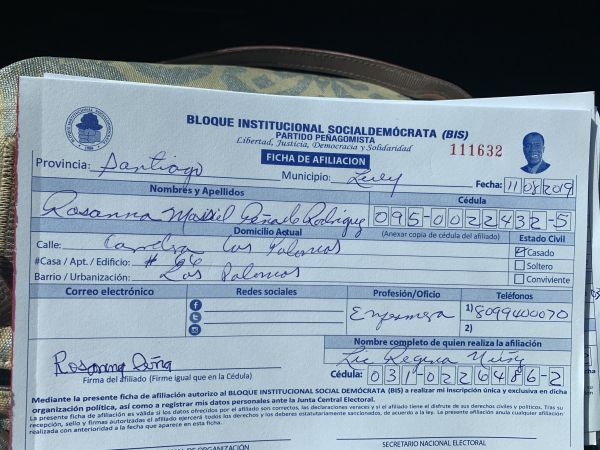 BLOQUE INSTITUCIONAL SOCIALDEMÓCRATA (BIS)
PARTIDO PEÑAGOMISTA
Libertad, Justicia, Democracia y Solidaridad
FICHA DE AFILIACION
111632
Provincia: Santiago Municipio: Licey Fecha: 11/08/2019
Nombres y Apellidos Cédula
Rosanna Massiel Rodriguez 095-0022432-5
Domicilio Actual (Anexar copia de cédula del afiliado) Estado Civil
Calle: Las Palomas Casado
#Casa / Apt. / Edificio: # 66 Soltero
Barrio / Urbanización: Las Palomas Conviviente
Correo electrónico Redes sociales Profesión/Oficio Teléfonos
Enfermera 1) 8099400070
2)
Nombre completo de quien realiza la afiliación
Rosanna Peña Lic Regina
Firma del afiliado (Firme igual que en la Cédula) Cédula: 031-0226486-2
Mediante la presente ficha de afiliación autorizo al BLOQUE INSTITUCIONAL SOCIAL DEMÓCRATA (BIS) a realizar mi inscripción única y exclusiva en dicha
organización política, así como a registrar mis datos personales ante la Junta Central Electoral.
La presente ficha de afiliación es válida si los datos ofrecidos por el afiliado son correctos, las declaraciones veraces y si el afiliado tiene el disfrute de sus derechos civiles y políticos. Tras su
recepción, sello y firmas autorizadas el afiliado ejercerá todos los derechos y los deberes estatutariamente sancionados, de acuerdo a la ley. La presente afiliación anula cualquier afiliación
realizada con anterioridad a la fecha que aparece en esta ficha.
DE ORGANIZACIÓN SECRETARIO NACIONAL ELECTORAL